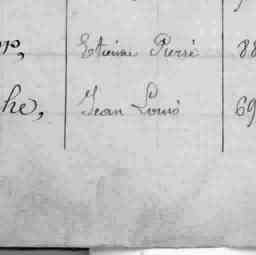 Etienne Pierre 88
he, Jean Louis 69